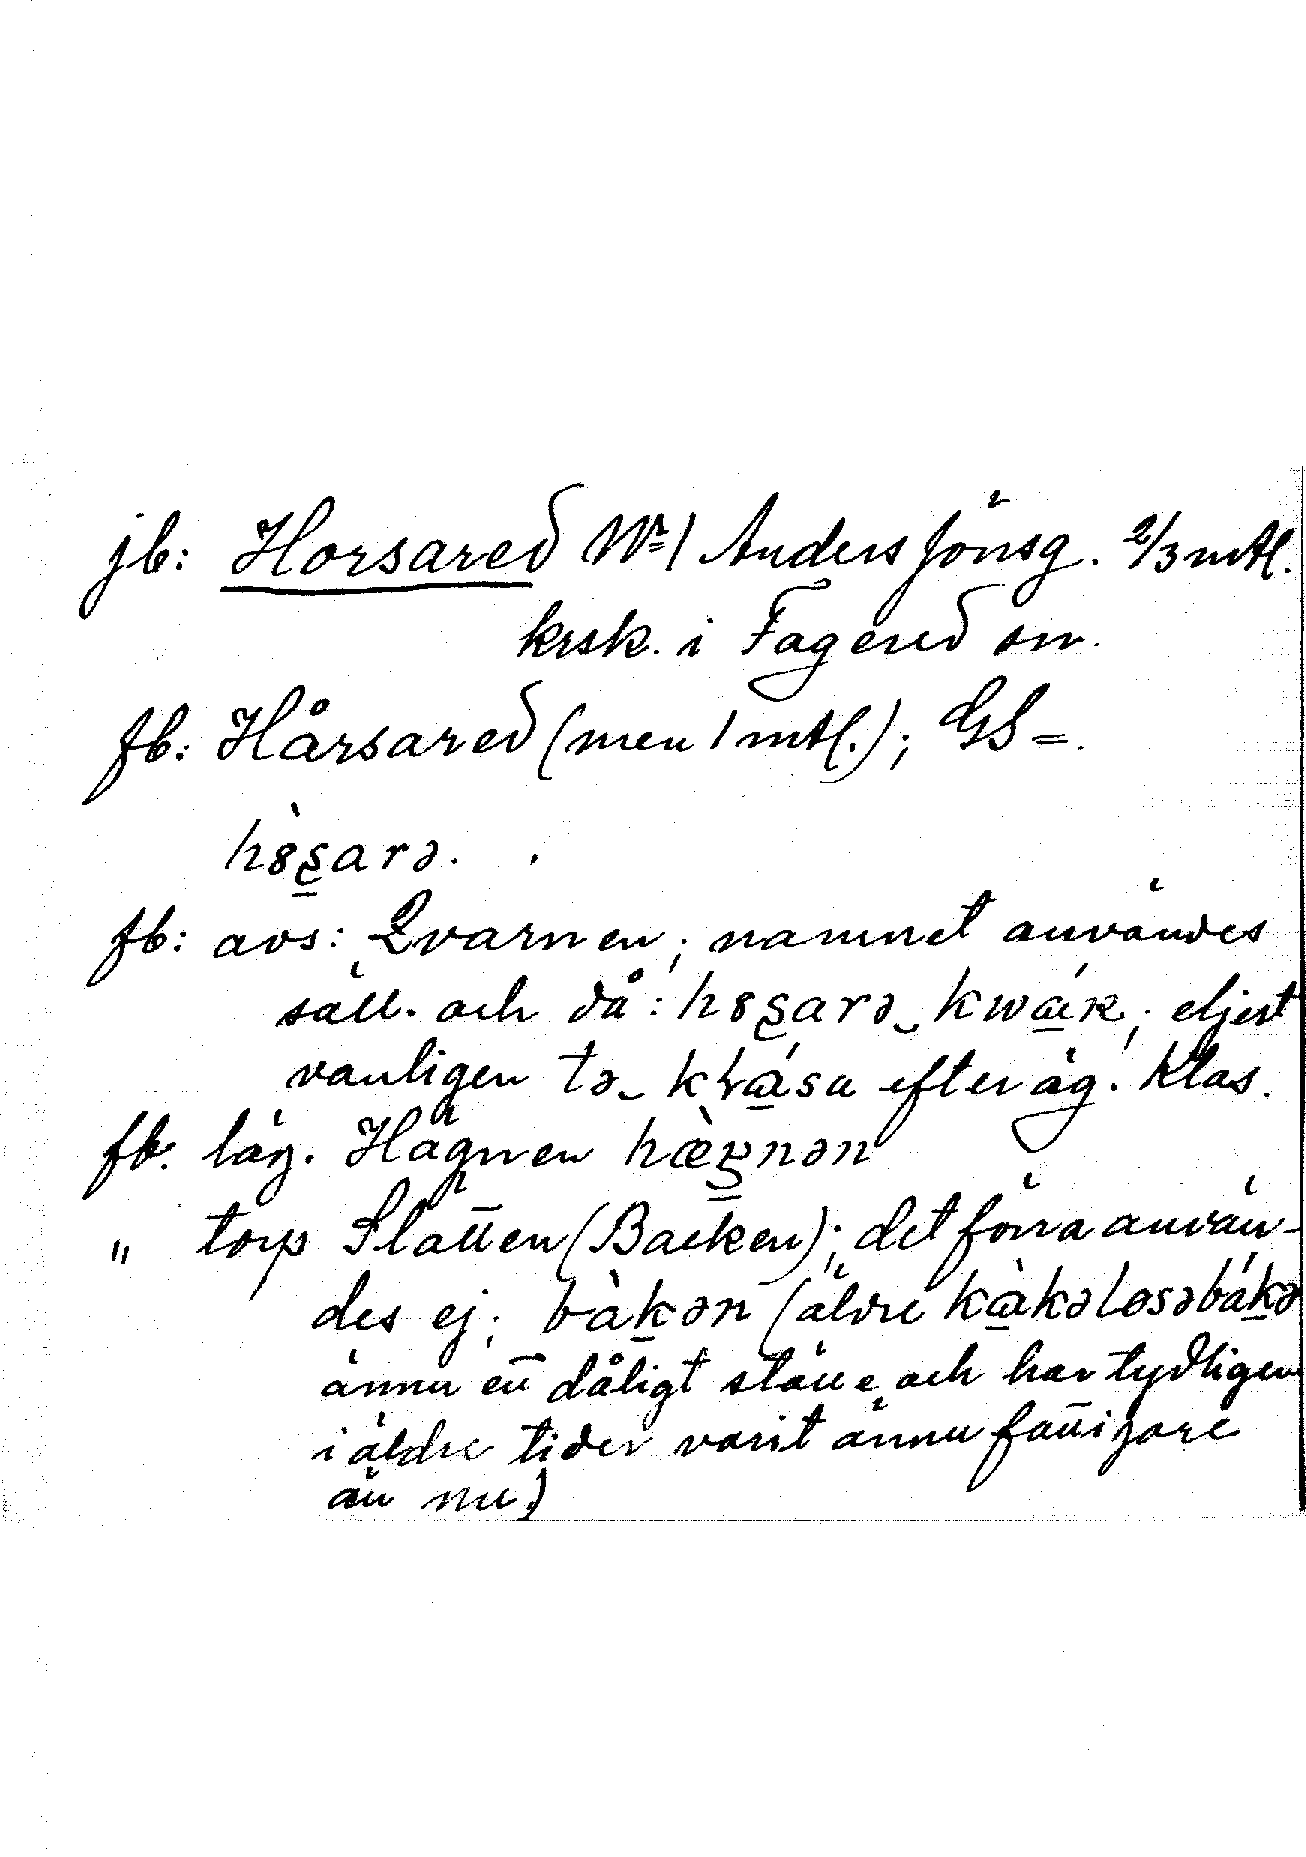 jb: Horsared Nr 1 Anders Jönsg. 2/3 mtl.
krsk. i Fagered sn.
fb: Hårsared (men 1 mtl.); GS =.
hòs̠arə.
fb: avs: Qvarnen; namnet användes
säll. och då: hosarə‿kwák; eljest
vanligen tə‿klása efter äg. Klas.
fb. läg. Hägnen hæ̀gnən
" torp Slätten (Backen); det förra använ-
des ej; bàkən (äldre kàkəlosəbákə
ännu ett dåligt ställe och har tydligen
i äldre tider varit ännu fattigare
än nu)